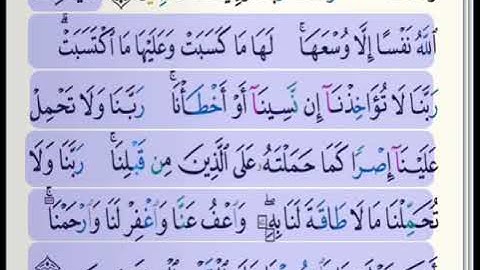 اللَّهُ نَفْسًا إِلَّا وُسْعَهَا ۚ لَهَا مَا كَسَبَتْ وَعَلَيْهَا مَا اكْتَسَبَتْ ۗ
رَبَّنَا لَا تُؤَاخِذْنَا إِن نَّسِينَا أَوْ أَخْطَأْنَا ۚ رَبَّنَا وَلَا تَحْمِلْ
عَلَيْنَا إِصْرًا كَمَا حَمَلْتَهُ عَلَى الَّذِينَ مِن قَبْلِنَا ۚ رَبَّنَا وَلَا
تُحَمِّلْنَا مَا لَا طَاقَةَ لَنَا بِهِ ۖ وَاعْفُ عَنَّا وَاغْفِرْ لَنَا وَارْحَمْنَا ۚ